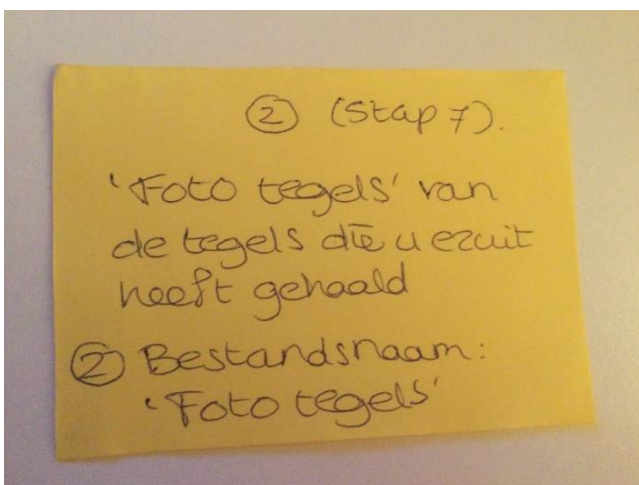 ② (Stap 7).
'Foto tegels' van
de tegels die u eruit
heeft gehaald
② Bestandsnaam:
'Foto tegels'